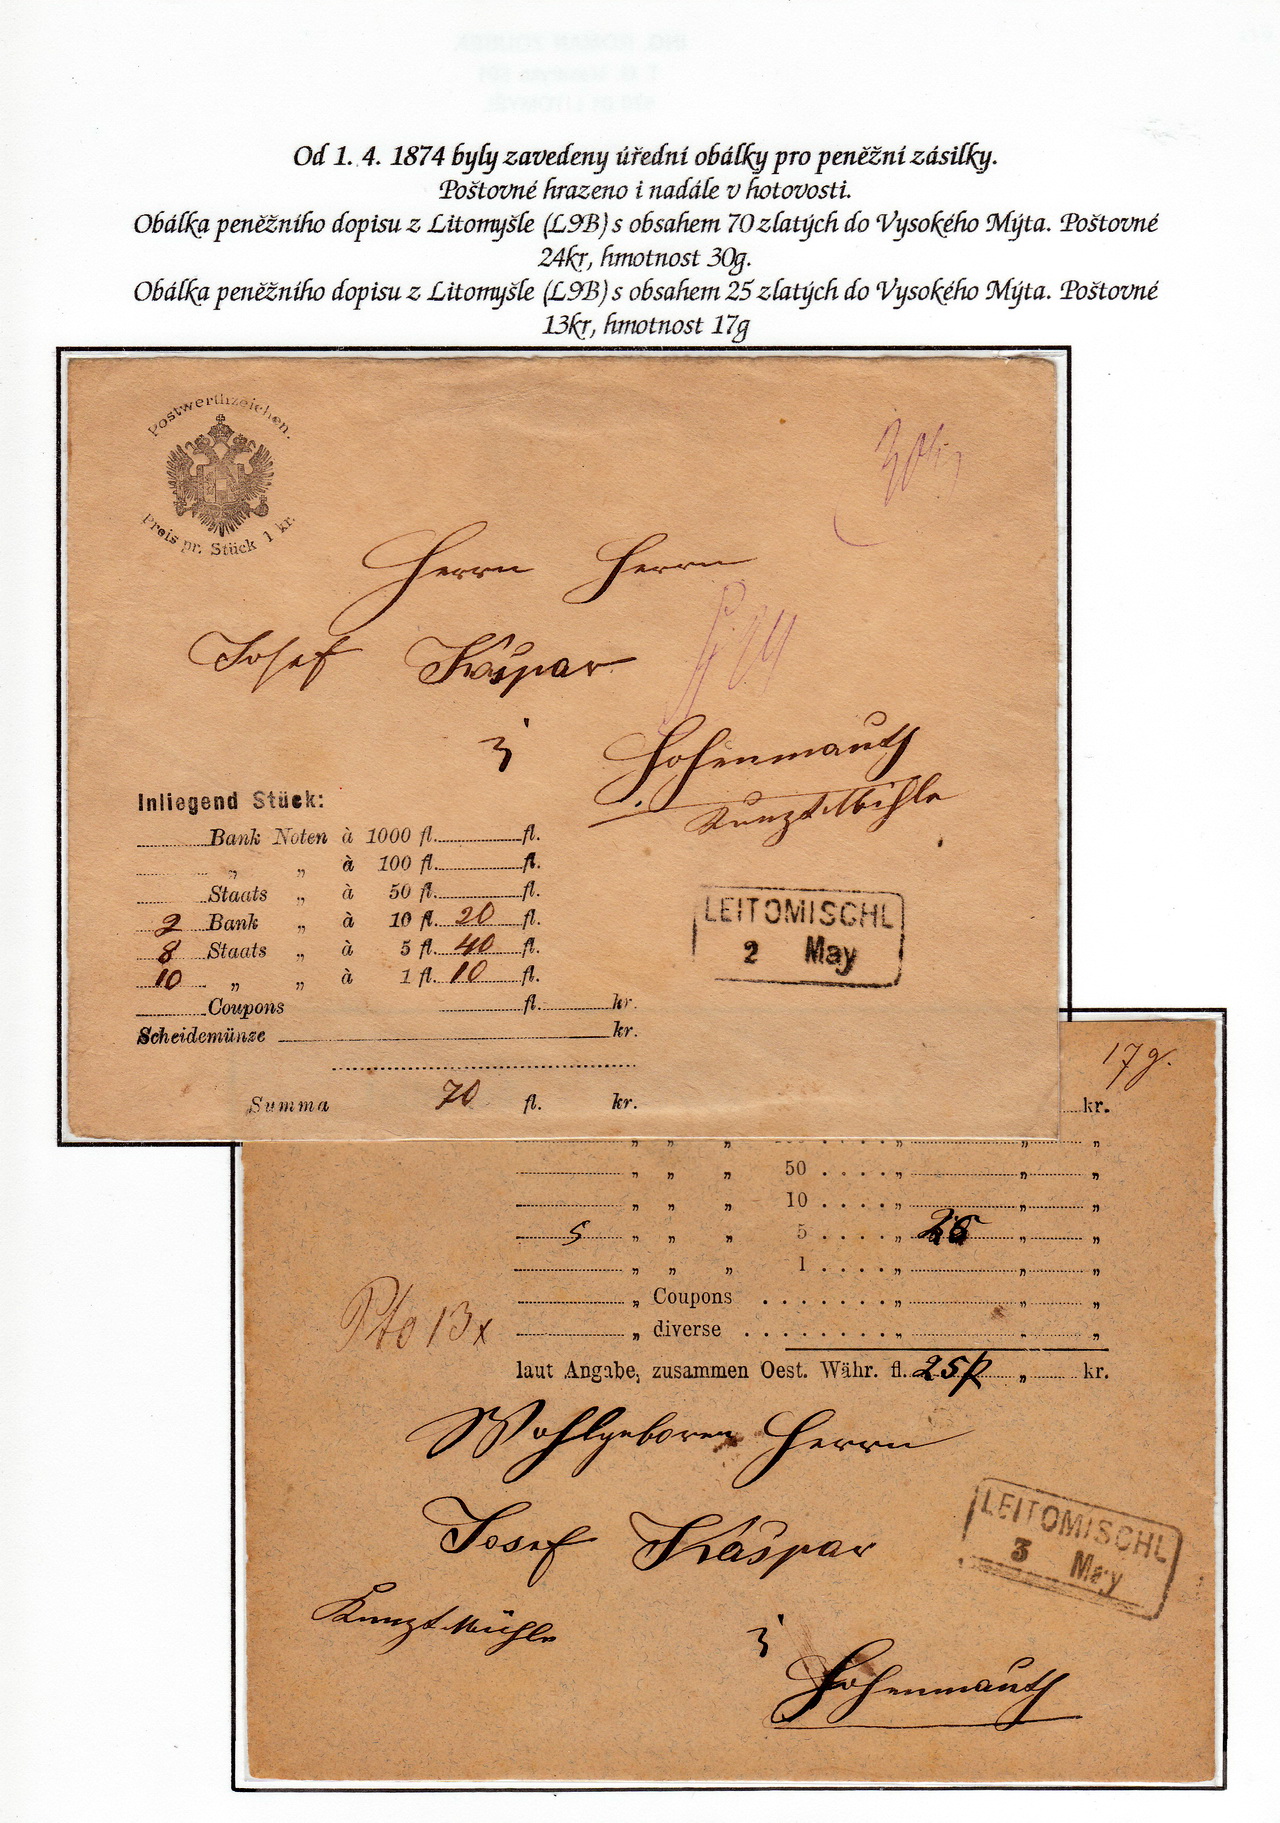 Od 1. 4. 1874 byly zavedeny úřední obálky pro peněžní zásilky.
Poštovné hrazeno i nadále v hotovosti.
Obálka peněžního dopisu z Litomyšle (L9B) s obsahem 70 zlatých do Vysokého Mýta. Poštovné
24kr, hmotnost 30g.
Obálka peněžního dopisu z Litomyšle (L9B) s obsahem 25 zlatých do Vysokého Mýta. Poštovné
13kr, hmotnost 17g
Postwerthzeichen.
Preis pr. Stück 1 kr.
Herrn Herrn
Josef Kašpar
Hohenmauth
Kunzt Mühle
Inliegend Stück:
Bank Noten à 1000 fl. fl.
„ „ à 100 fl. fl.
Staats „ à 50 fl. fl.
2 Bank „ à 10 fl. 20 fl.
8 Staats „ à 5 fl. 40 fl.
10 „ „ à 1 fl. 10 fl.
Coupons fl. kr.
Scheidemünze kr.
Summa 70 fl. kr.
LEITOMISCHL
2 May
17g.
kr.
„ „ „ „ „ „
„ „ „ 50 . . . . „ „ „
„ „ „ 10 . . . . „ „ „
5 „ „ „ 5 . . . . „ 25 „ „
„ „ „ 1 . . . . „ „ „
„ Coupons . . . . . . . „ „ „
„ diverse . . . . . . . . „ „ „
Pto 13x
laut Angabe, zusammen Oest. Währ. fl. 25 „ kr.
Wohlgeboren Herrn
Josef Kašpar
Kunzt Mühle
Hohenmauth
LEITOMISCHL
3 May